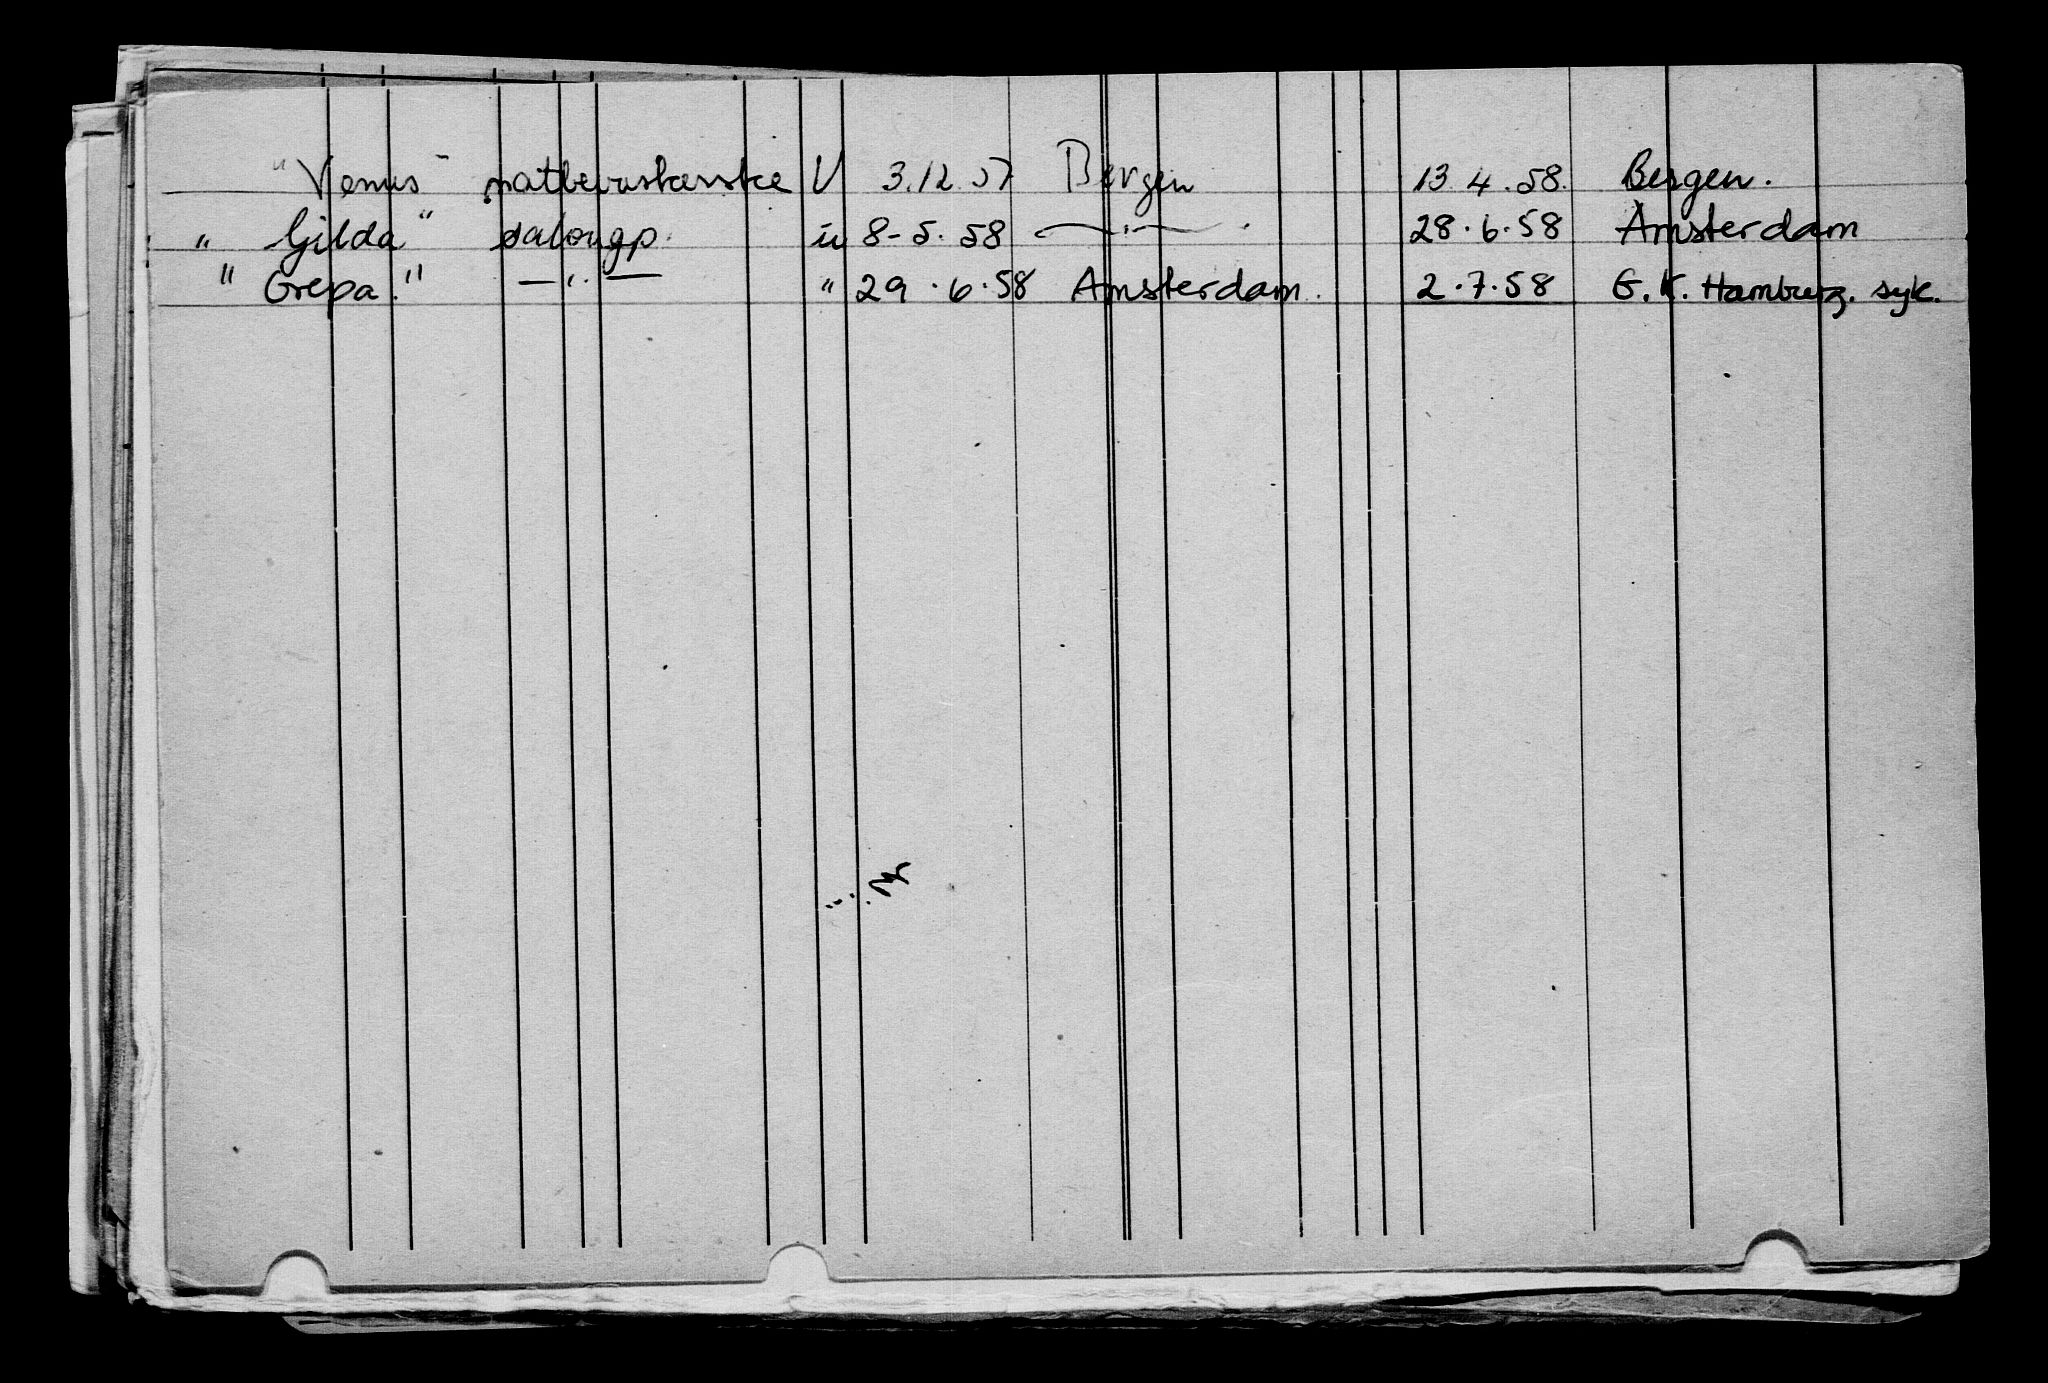 "Venus" natbevaskerske U 3.12.57 Bergen 13.4.58. Bergen.
" Gilda" salongp. u 8-5.58 —"— . 28.6.58 Amsterdam
" Grepa." —"— " 29.6.58 Amsterdam. 2.7.58 G.K. Hamburg. syk.